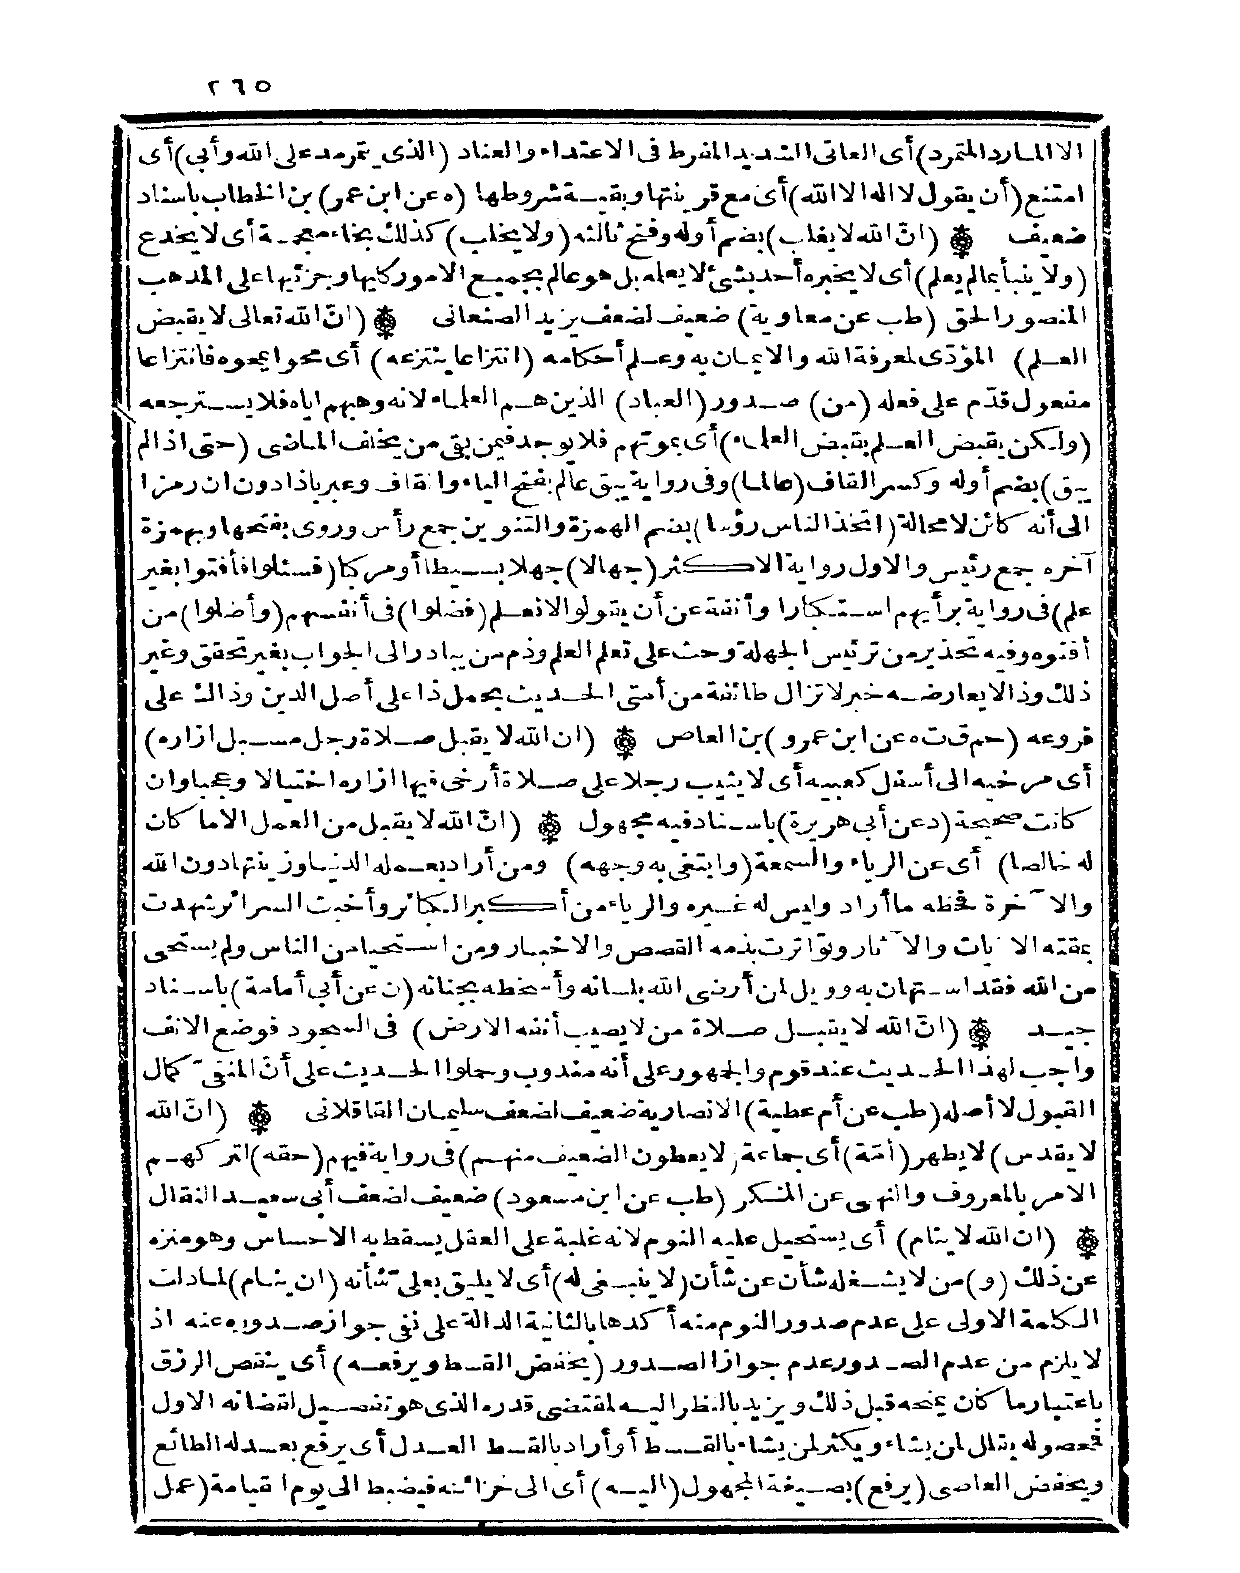 ٢٦٥
الا المارد المتمرد) أى العاتى الشديد المفرط فى الاعتداء والعناد (الذى يتمرد على الله وأبى) أى
امتنع (أن يقول لا اله الا الله) أى مع قرينتها وبقيـة شروطها (ه عن ابن عمر) بن الخطاب باسناد
ضعيف ۞ (انّ الله لا يغلب) بضم أوله وفتح ثالثه (ولا يخلب) كذلك بخاء معجمـة أى لا يخدع
(ولا ينبأ بما لم يعلم) أى لا يخبره أحد بشئ لا يعلمه بل هو عالم بجميع الامور كليها وجزئيها على المذهب
المنصور الحق (طب عن معاوية) ضعيف لضعف يزيد الصنعانى ۞ (انّ الله تعالى لا يقبض
العـلم) المؤدّى لمعرفة الله والايمان به وعـلم أحكامه (انتزاعا ينتزعه) أى محوا يمحوه فانتزاعا
مفعول قدّم على فعله (من) صـدور (العباد) الذين هـم العلماء لانه وهبهم اياه فلا يسـترجعه
(ولكن يقبض العـلم بقبض العلماء) أى بموتهم فلا يوجد فيمن بقى من يخلف الماضى (حتى اذا لم
يبق) بضم أوله وكسر القاف (عالما) وفى رواية يبق عالم بفتح الياء والقاف وعبر باذا دون ان رمزا
الى أنه كائن لا محالة (اتخذ الناس رؤسا) بضم الهمزة والتنوين جمع رأس وروى بفتحها وبهمزة
آخره جمع رئيس والاول رواية الاكثر (جهالا) جهلا بسـيطا أو مركبا (فسئلوا فأفتوا بغير
علم) فى رواية برأيهم اسـتكبارا وأنفة عن أن يقولوا لا نعـلم (فضلوا) فى أنفسهم (وأضلوا) من
أفتوه وفيه تحذير من ترئيس الجهلة وحث على تعلم العلم وذم من يبادر الى الجواب بغير تحقق وغير
ذلك وذا لا يعارضـه خبر لا تزال طائفة من أمتى الحـديث بحمل ذا على أصل الدين وذاك على
فروعه (حم ق ت ه عن ابن عمرو) بن العاص ۞ (ان الله لا يقبل صـلاة رجل مسـبل ازاره)
أى مرخيه الى أسفل كعبيه أى لا يثيب رجلا على صـلاة أرخى فيها ازاره اختيالا وعجبا وان
كانت صحيحة (د عن أبى هريرة) باسـناد فيه مجهول ۞ (انّ الله لا يقبل من العمل الا ما كان
له خالصا) أى عن الرياء والسمعة (وابتغى به وجهه) ومن أراد بعـمله الدنيا وزينتها دون الله
والآخرة فحظه ما أراد وليس له غـيره والرياء من أكبر الكبائر وأخبث السرائر شهدت
بمقته الآيات والآثار وتواترت بذمه القصص والاخبـار ومن اسـتحيا من الناس ولم يستحى
من الله فقد اسـتهان به وويل لمن أرضى الله بلسانه وأسخطه بجنانه (ن عن أبى أمامة) باسـناد
جيـد ۞ (انّ الله لا يقبـل صـلاة من لا يصيب أنفه الارض) فى السجود فوضع الانف
واجب لهذا الحـديث عند قوم والجمهور على أنه مندوب وحملوا الحـديث على أنّ المنفىّ كمال
القبول لا أصله (طب عن أم عطية) الانصارية ضعيف لضعف سليمان القافلانى ۞ (انّ الله
لا يقدس) لا يطهر (أمّة) أى جماعة (لا يعطون الضعيف منهـم) فى رواية فيهم (حقه) لتركهـم
الامر بالمعروف والنهى عن المنكر (طب عن ابن مسعود) ضعيف لضعف أبى سعيـد البقال
۞ (ان الله لا ينام) أى يسـتحيل عليه النوم لانه غلبة على العقل يسقط به الاحساس وهو منزه
عن ذلك (و) من لا يشـغله شأن عن شأن (لا ينبـغى له) أى لا يليق بعلىّ شأنه (ان ينـام) لما دلت
الكلمة الاولى على عدم صدور النوم منه أكدها بالثانية الدالة على نفى جواز صـدوره عنه اذ
لا يلزم من عدم الصـدور عدم جواز الصـدور (يخفض القسـط ويرفعـه) أى ينقص الرزق
باعتبار ما كان يمنحه قبل ذلك ويزيد بالنظر اليـه لمقتضى قدره الذى هو تفصـيل لقضائه الاول
فمحصوله يقلل لمن يشاء ويكثر لمن يشاء بالقسـط أو أراد بالقسـط العـدل أى يرفع بعـدله الطائع
ويخفض العاصى (يرفع) بصـيغة المجهول (اليـه) أى الى خزائنه فيضبط الى يوم القيامة (عمل